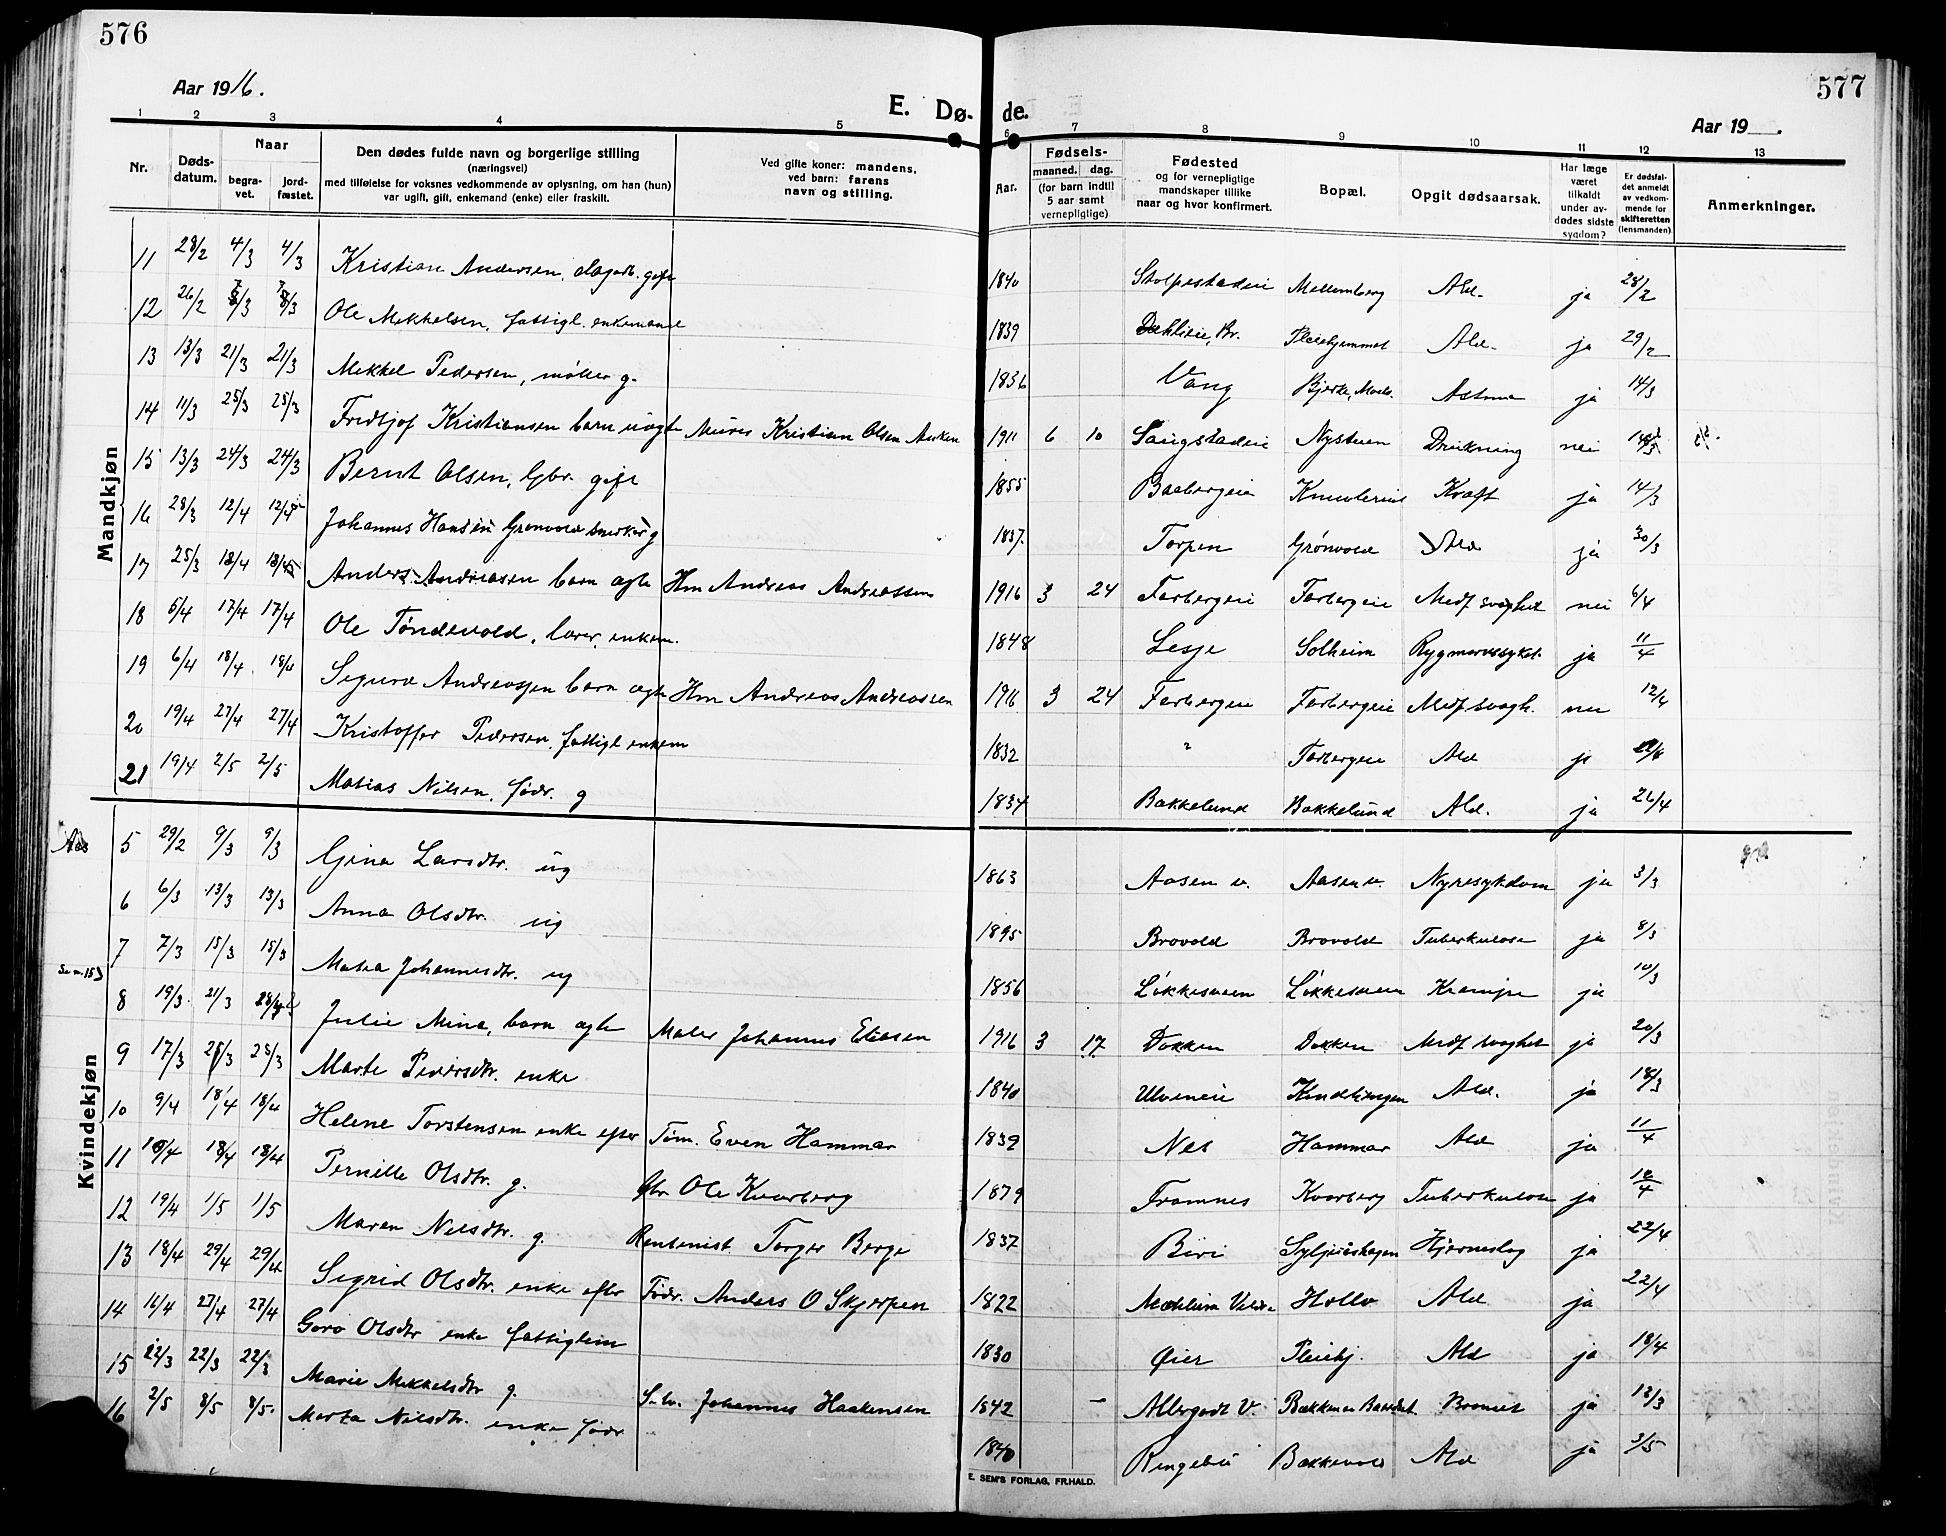 576
577
Aar 1916.
E. Dø- de.
Aar 19 .
1 2 3 4 5 6 7 8 9 10 11 12 13
Nr.
Døds-datum.
Naar
begra-vet.
jord-fæstet.
Den dødes fulde navn og borgerlige stilling
(næringsvei)
med tilføielse for voksnes vedkommende av oplysning, om han (hun)
var ugift, gift, enkemand (enke) eller fraskilt.
Ved gifte koner: mandens,
ved barn: farens
navn og stilling.
Aar.
Fødsels-
maaned. dag.
(for barn indtil
5 aar samt
vernepligtige)
Fødested
og for vernepligtige
mandskaper tillike
naar og hvor konfirmert.
Bopæl.
Opgit dødsaarsak.
Har læge
været
tilkaldt
under av-
dødes sidste
sygdom?
Er dødsfal-
det anmeldt
av vedkom-
mende for
skifteretten
(lensmanden).
Anmerkninger.
Mandkjøn
11 28/2 4/3 4/3 Kristian Andersen, dagarb. gift 1840 Stolpestadeie Mellemberg Ald. ja 28/2
12 26/2 Ole Mikkelsen, fattigl. enkemand 1839 Pleiehjemmet Ald. ja 29/2
13 13/3 21/3 21/3 Mikkel Pedersen, møller g. 1836 Vang Bjerke, Ast­ma ja 14/3
14 11/3 25/3 25/3 Fredtjof Kristiansen barn uægte Murer Kristian Olsen 1911 6 10 Saugstadeie Nystuen Drukning nei
15 13/3 24/3 24/3 Bernt Olsen, Gbr. gift 1855 Baabergeie Kræft ja 14/3
16 28/3 12/4 12/4 Johannes Hansen Grønvold snerker g 1837 Torpen Grønvold Ald ja 30/3
17 25/3 18/4 18/4 Anders Andreasen barn ægte Hm Andreas Andreassen 1916 3 24 Farbergeie Farbergeie Medf svaghet nei 6/4
18 5/4 17/4 17/4 Ole Tøndevold, lærer, enkem. 1848 Lesje Solheim Rygmarvssykd. ja 11/4
19 6/4 18/4 18/4 Sigurd Andreassen barn ægte Hm Andreas Andreassen 1916 3 24 Farbergeie Farbergeie Medf svagh. nei 12/4
20 19/4 27/4 27/4 Kristoffer Pedersen, fattigl enkem 1832 " Farbergeie Ald ja
21 19/4 2/5 2/5 Matias Nilsen, føder. g 1834 Bakkelund Bakkelund Ald. ja 26/4
Kvindekjøn
Aas 5 29/2 9/3 9/3 Gina Larsdtr. ug 1863 Aasen v. Aasen v. Nyresykdom ja 3/3
6 6/3 13/3 13/3 Anna Olsdtr. ug 1895 Brovold Brovold Tuberkulose ja 8/3
7 7/3 15/3 15/3 Matea Johannesdtr. ug 1856 Løkkesveen Løkkesveen Krampe ja 10/3
8 19/3 21/3 Julie Mina, barn ægte Maler Johannes Eliasen 1916 3 17 Dokken Dokken Medf svaghet ja 20/3
9 17/3 25/3 25/3 Marte Pedersdtr. enke 1840 Ulveneie Ald. ja 18/3
10 9/4 18/4 18/4 Helene Torstensen enke efter Tøm. Even Hammar 1839 Nes Hammar Ald ja 11/4
11 10/4 18/4 18/4 Pernille Olsdtr. g. Gbr. Ole Kvarberg 1879 Framnes Kvarberg Tuberkulose ja 12/4
12 19/4 1/5 1/5 Maren Nilsdtr. g. Rentenist Torger Berge 1837 Biri Hjerneslag ja 22/4
13 18/4 29/4 29/4 Sigrid Olsdtr. enke efter Føder. Anders O Skjerpen 1822 Mæhlum Holla Ald ja 22/4
14 16/4 27/4 27/4 Goro Olsdtr enke fattiglem 1830 Øier Pleiehj. Ald ja 18/4
15 22/3 22/3 22/3 Marie Mikkelsdtr g. Johannes Haakensen 1842 — Allergodt V. ja 13/3
16 2/5 8/5 8/5 Marta Nilsdtr. enke føder 1840 Ringebu Bækkevold Ald ja 3/5
E. SEM'S FORLAG, FR.HALD.